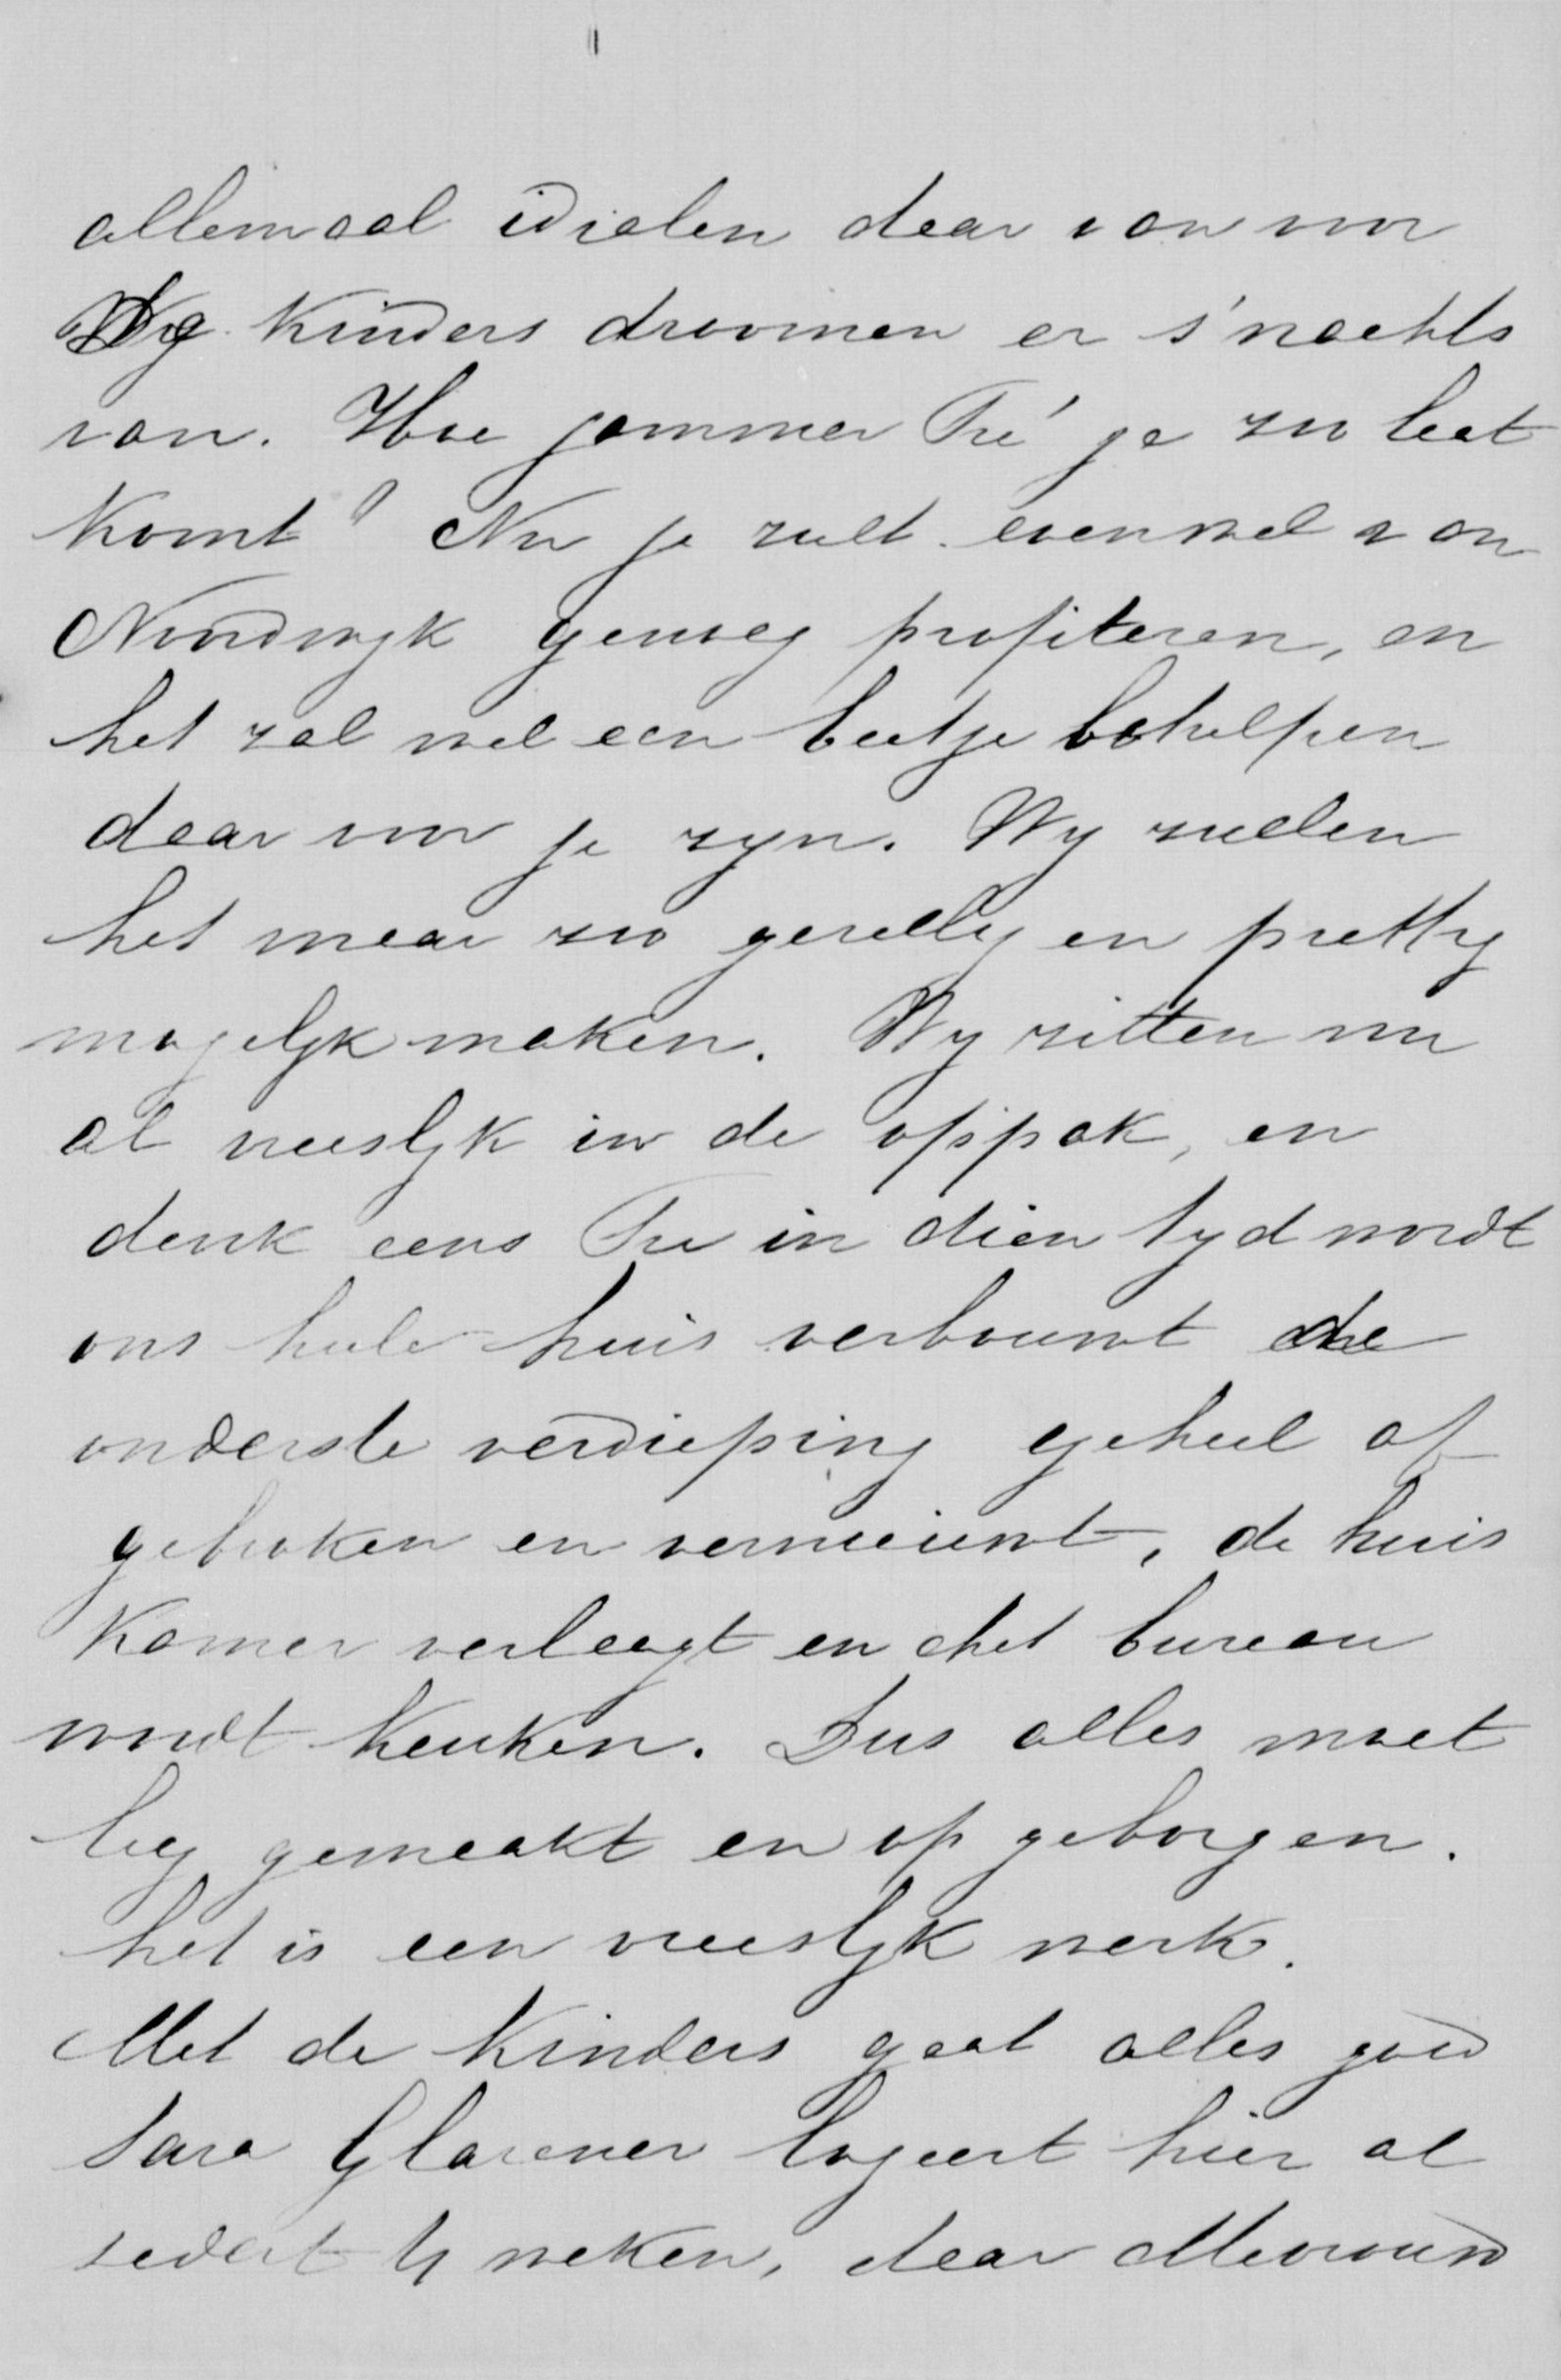 allemaal idialen daar van voor
De kinders droomen er s'nachts
van. Hoe jammer Tré je zoo laat
komt! Nu je zult evenwel van
Noordwyk genoeg profiteren, en
het zal wel een beetje behelpen
daar voor je zyn. Wy zullen
het maar zoo gezellig en prettig
mogelyk maken. Wy zitten nu
al vreeslyk in de oppak, en
denk eens Tre in dien tyd wordt
ons heele huis verbouwt de
onderste verdieping geheel af
gebroken en vernieuwt, de huis
kamer verlaagt en het bureau
wordt keuken. Dus alles moet
leeg gemaakt en op geborgen.
het is een vreeslyk werk.
Met de Kinders gaat alles goed
Sara Glarener logeert hier al
sedert 4 weken, daar Mevrouw